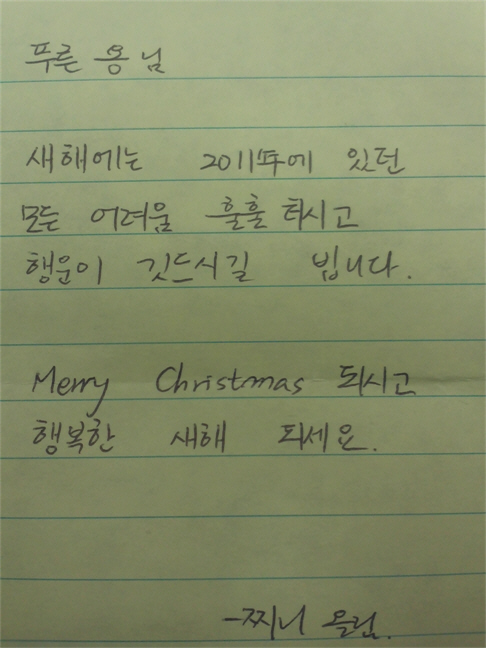 푸른 용 님
새해에는 2011年에 있던
모든 어려움 훌훌 터시고
행운이 깃드시길 빕니다.
Merry Christmas 되시고
행복한 새해 되세요.
-찌니 올림.